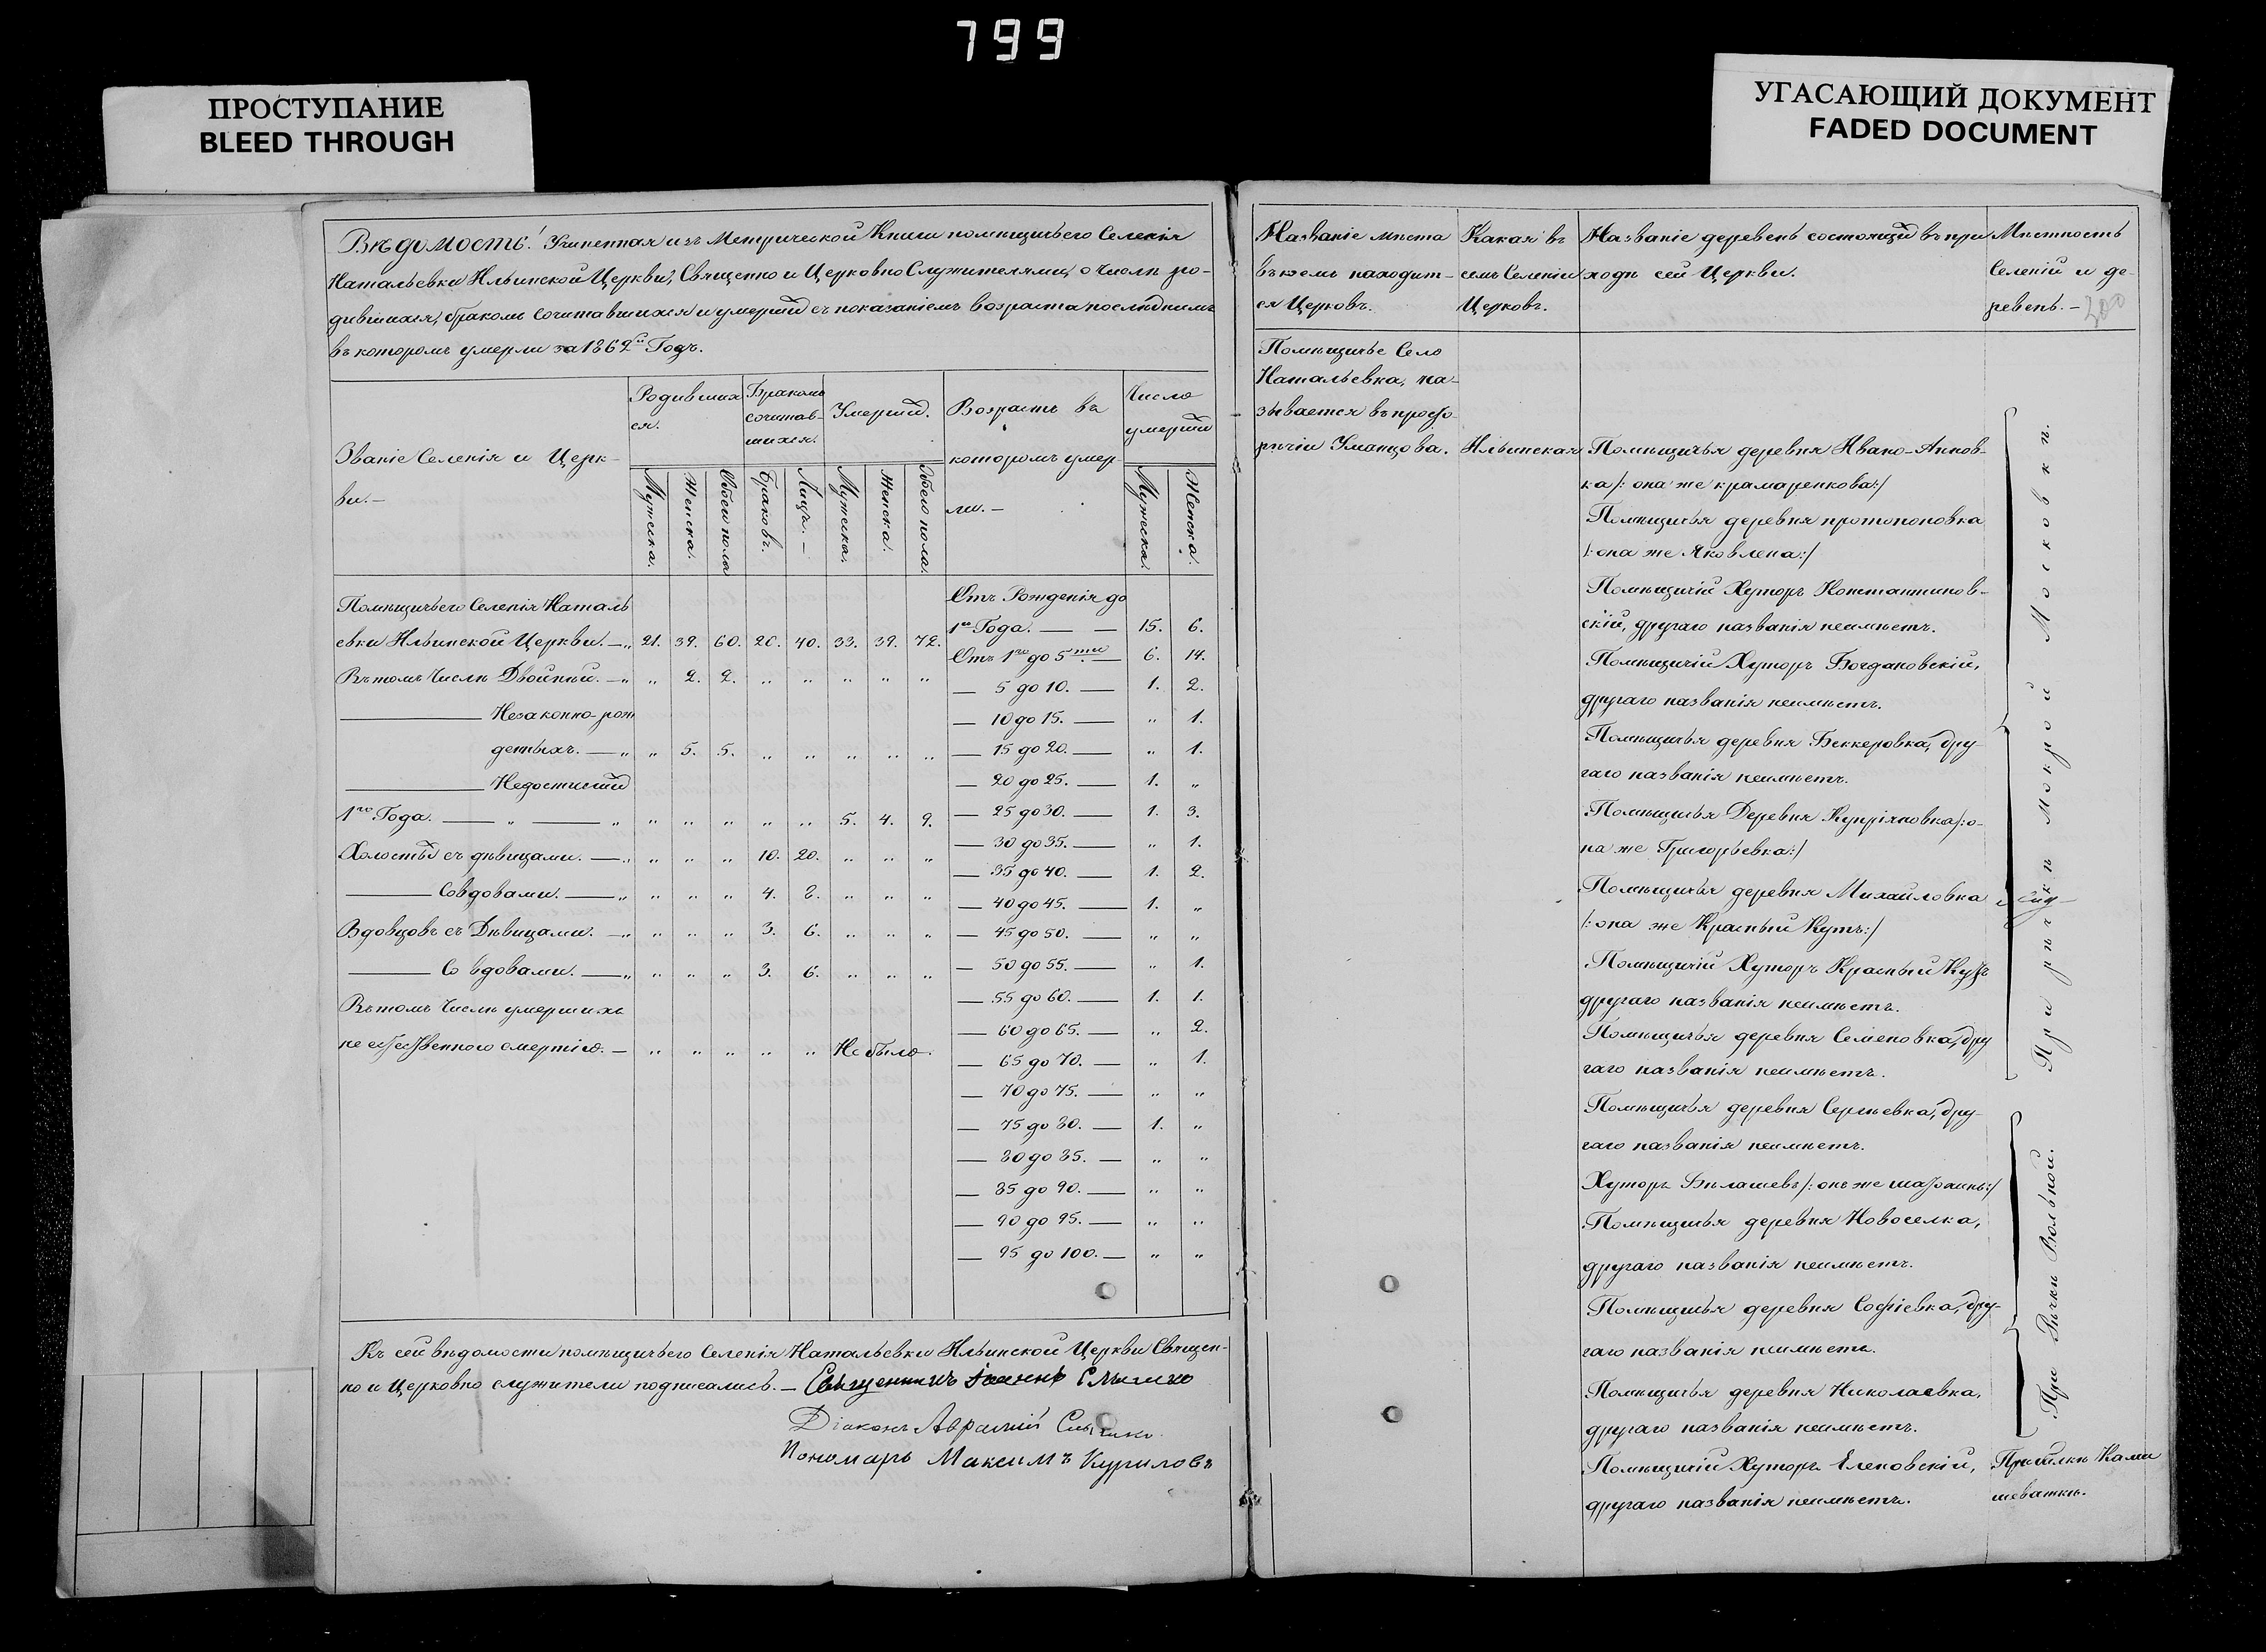 799
ПРОСТУПАНИЕ
BLEED THROUGH
УГАСАЮЩИЙ ДОКУМЕНТ
FADED DOCUMENT
Вѣдомость! Учиненная изъ Метрической Книги помѣщичьего Селенія
Натальевки Ильинской Церкви, Священно и Церковно Служителями, о Числѣ ро-
дившихся, бракомъ сочитавшихся и умершихъ съ показаніемъ возраста послѣднимъ
въ которомъ умерли за 1862й Годъ.
Званіе Селенія и Церк-
ви. —
Родивших
ся.
Бракомъ
сочитав-
шихся.
Умершихъ.
Возрастъ въ
которомъ умер-
ли. —
Число
умершихъ
Мужеска.
Женска.
Обоего пола
Браковъ.
Лицъ. —
Мужеска.
Женска.
Обоего пола.
Мужеска.
Женска.
Помѣщичьего Селенія Наталь
евки Ильинской Церкви. — „ 21. 39. 60. 20. 40. 33. 39. 72.
Въ томъ Числѣ Двойней. — „ „ 2. 2. „ „ „ „ „
——— Незаконно-рож
денныхъ. — „ „ 5. 5. „ „ „ „ „
——— Недостигшихъ
1го Года. — „ — „ „ „ „ „ „ 5. 4. 9.
Холостыхъ съ дѣвицами. — „ „ „ „ 10. 20. „ „ „
——— Совдовами. — „ „ „ „ 4. 8. „ „ „
Вдовцовъ съ Дѣвицами. — „ „ „ „ 3. 6. „ „ „
——— Со вдовами. — „ „ „ „ 3. 6. „ „ „
Въ томъ Числѣ умершихъ
не естественного смертію. — „ „ „ „ „ Не было.
Отъ Рожденія до
1го Года. — — 15. 6.
Отъ 1го до 5ти — 6. 14.
— 5 до 10. — 1. 2.
— 10 до 15. — „ 1.
— 15 до 20. — „ 1.
— 20 до 25. — 1. „
— 25 до 30. — 1. 3.
— 30 до 35. — „ 1.
— 35 до 40. — 1. 2.
— 40 до 45. — 1. „
— 45 до 50. — „ „
— 50 до 55. — „ 1.
— 55 до 60. — 1. 1.
— 60 до 65. — „ 2.
— 65 до 70. — „ 1.
— 70 до 75. — „ „
— 75 до 80. — 1. „
— 80 до 85. — „ „
— 85 до 90. — „ „
— 90 до 95. — „ „
— 95 до 100. — „ „
Къ сей вѣдомости помѣщичьего Селенія Натальевки Ильинской Церкви Священ-
но и Церковно служители подписались. — Священникъ Іоаннъ
Діаконъ
Пономарь Максимъ Куриловъ
Названіе мѣста
въ коемъ находит-
ся Церковь.
Какая въ
семъ Селеніи
Церковь.
Названіе деревень состоящихъ въ при
ходѣ сей Церкви.
Мѣстность
Селеній и де-
ревень. —
200
Помѣщичье Село
Натальевка, на-
зывается въ просто-
рѣчіи Уманцова.
Ильинская
Помѣщичья деревня Ивано-Аннов-
ка /: она же крамаренкова :/
Помѣщичья деревня протопоповка
/: она же Яковлена :/
Помѣщичій Хуторъ Константинов-
скій, другаго названія неимѣетъ.
Помѣщичій Хуторъ Богдановскій,
другаго названія неимѣетъ.
Помѣщичья деревня Беккеровка, дру-
гаго названія неимѣетъ.
Помѣщичья Деревня Купріяновка /: о-
на же Григорьевка :/
Помѣщичья деревня Михайловка
/: она же Красный Кутъ :/
Помѣщичій Хуторъ Красный Кутъ
другаго названія неимѣетъ.
Помѣщичья деревня Семеновка, дру
гаго названія неимѣетъ.
Помѣщичья деревня Сергѣевка, дру-
гаго названія неимѣетъ.
Хуторъ Билашевъ /: онъ же :/
Помѣщичья деревня Новоселка,
другаго названія неимѣетъ.
Помѣщичья деревня Софіевка, дру-
гаго названія неимѣетъ.
Помѣщичья деревня Николаевка,
другаго названія неимѣетъ.
Помѣщичій Хуторъ Еленовскій,
другаго названія неимѣетъ.
При рѣчкѣ Мокрой Московки.
При Рѣчки Вольной.
При балкѣ Ками
шеваткѣ.